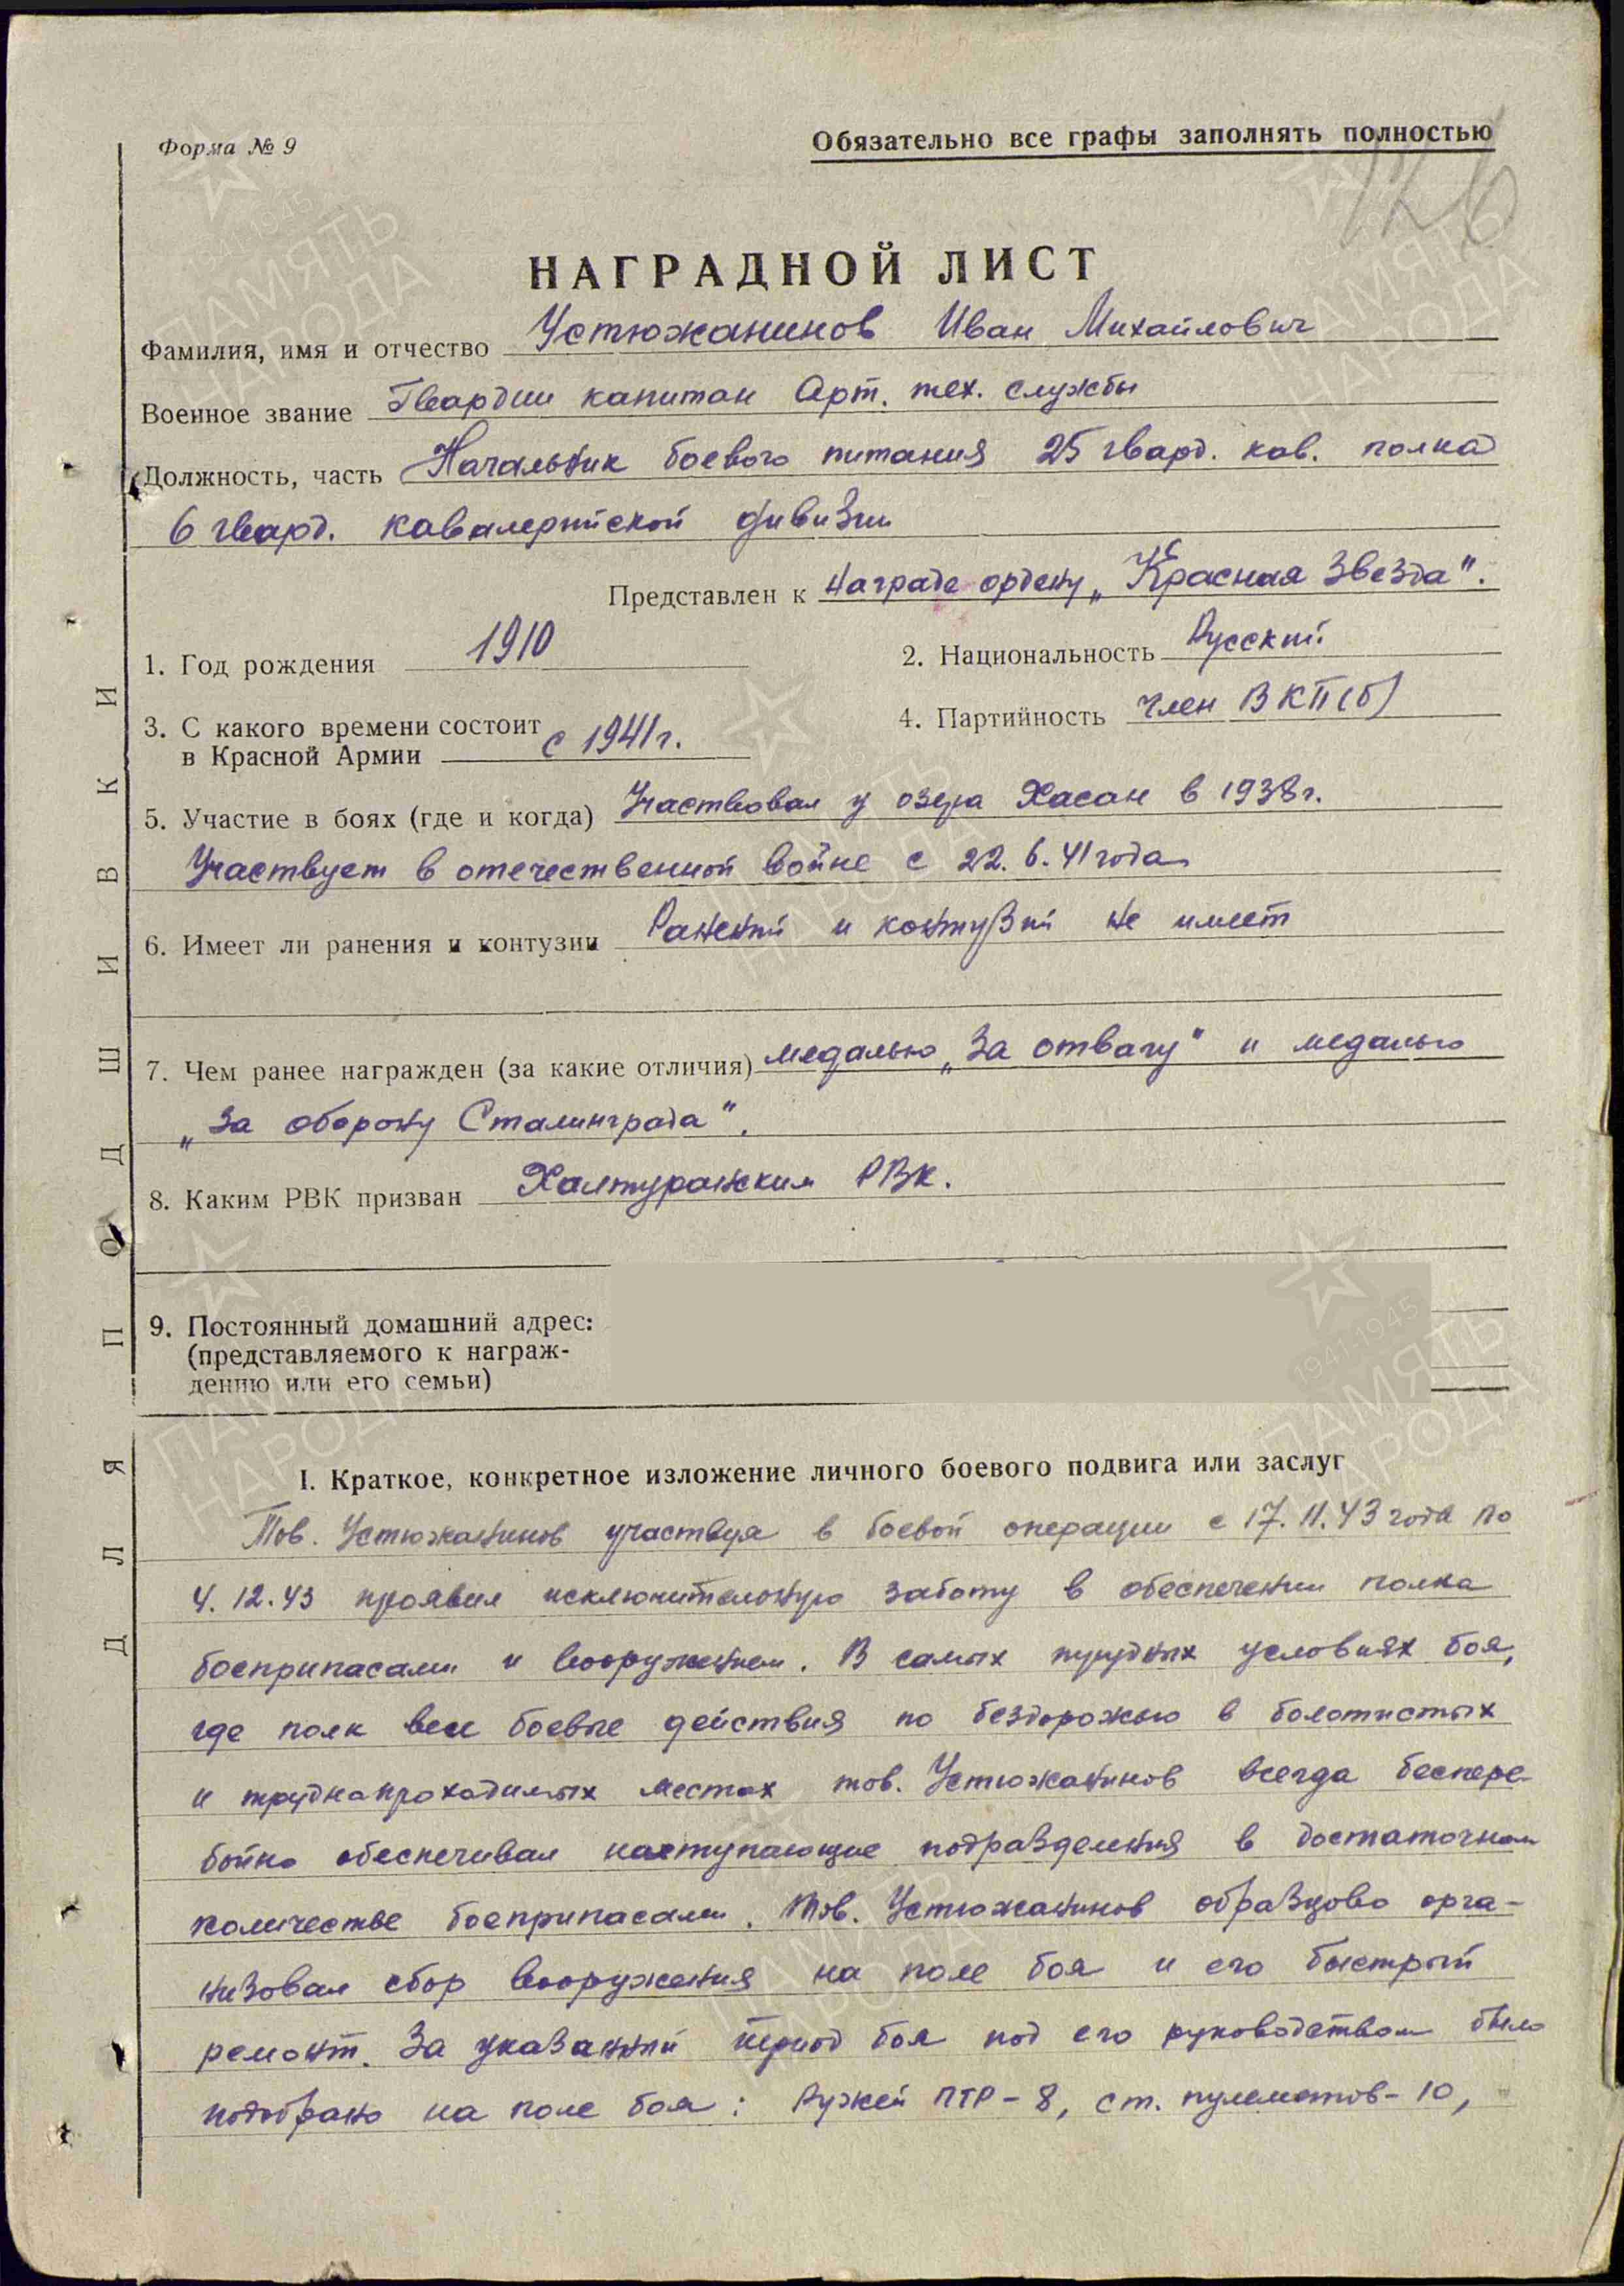 Форма № 9
Обязательно все графы заполнять полностью
126
НАГРАДНОЙ ЛИСТ
Фамилия, имя и отчество Устюжанинов Иван Михайлович
Военное звание Гвардии капитан Арт. тех. службы
Должность, часть Начальник боевого питания 25 гвард. кав. полка
6 гвард. кавалерийской дивизии
Представлен к награде ордену „Красная Звезда".
1. Год рождения 1910
2. Национальность Русский
3. С какого времени состоит в Красной Армии с 1941г.
4. Партийность член ВКП(б)
5. Участие в боях (где и когда) Участвовал у озера Хасан в 1938г.
Участвует в отечественной войне с 22.6.41 года
6. Имеет ли ранения и контузии Ранений и контузий не имеет
7. Чем ранее награжден (за какие отличия) медалью „За отвагу" и медалью
„За оборону Сталинграда".
8. Каким РВК призван Халтуранским РВК.
9. Постоянный домашний адрес:
(представляемого к награж-
дению или его семьи)
I. Краткое, конкретное изложение личного боевого подвига или заслуг
Тов. Устюжанинов участвуя в боевой операции с 17.11.43 года по
4.12.43 проявил исключительную заботу в обеспечении полка
боеприпасами и вооружением. В самых трудных условиях боя,
где полк вел боевые действия по бездорожью в болотистых
и труднапроходимых местах тов. Устюжанинов всегда беспере-
бойно обеспечивал наступающие подразделения в достаточном
количестве боеприпасами. Тов. Устюжанинов образцово орга-
низовал сбор вооружения на поле боя и его быстрый
ремонт. За указанный период боя под его руководством было
подобрано на поле боя: Ружей ПТР-8, ст. пулеметов-10,
ДЛЯ ПОДШИВКИ
1941-1945
ПАМЯТЬ
НАРОДА